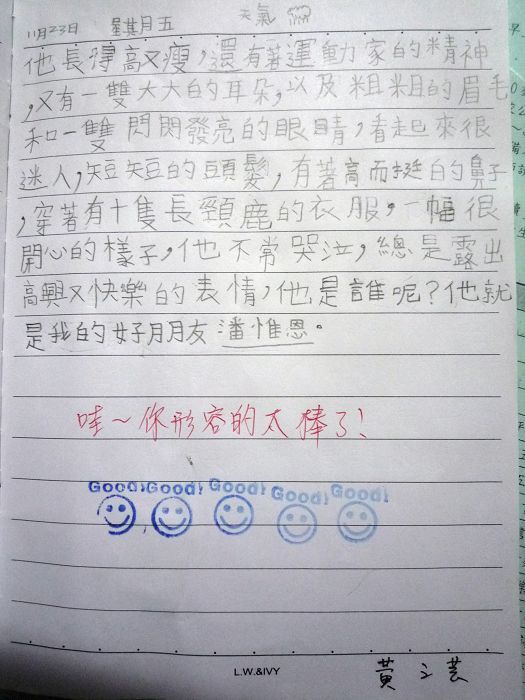 11月23日 星期五 天氣
他長得高又瘦，還有著運動家的精神
，又有一雙大大的耳朵，以及粗粗的眉毛
和一雙閃閃發亮的眼睛，看起來很
迷人，短短的頭髮，有著高而挺的鼻子
，穿著有十隻長頸鹿的衣服，一幅很
開心的樣子，他不常哭泣，總是露出
高興又快樂的表情，他是誰呢？他就
是我的好朋友潘惟恩。
哇～你形容的太棒了！
Good! Good! Good! Good! Good!
L.W.&IVY
黃之芸